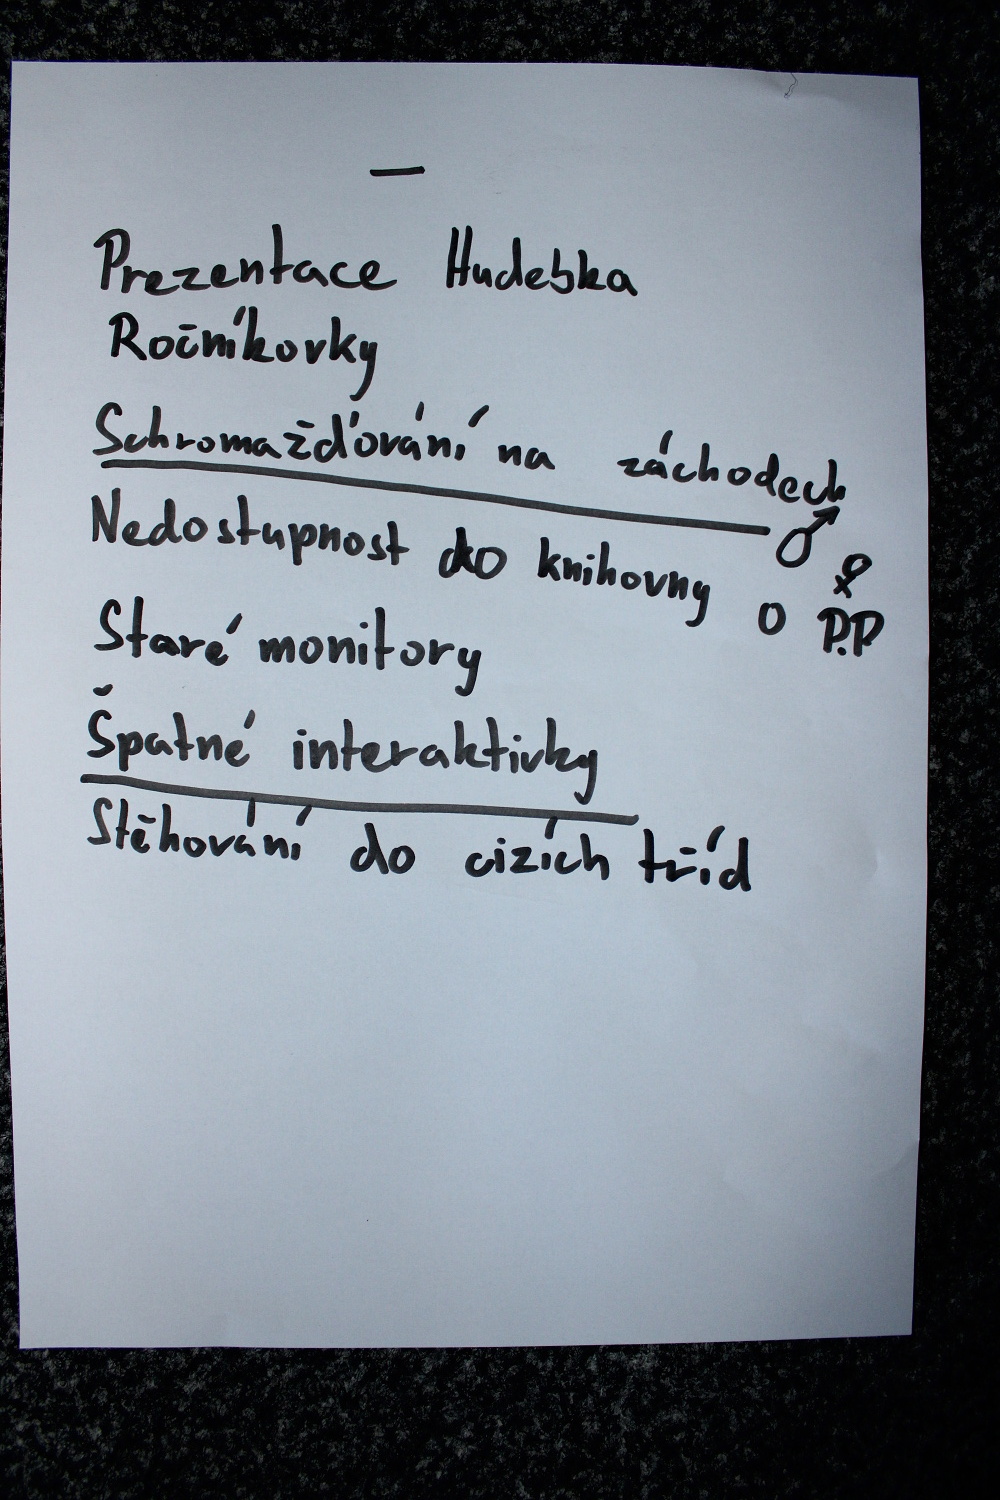 –
Prezentace Hudebka
Ročníkovky
Schromažďování na záchodech ♂ ♀
Nedostupnost do knihovny o P.P
Staré monitory
Špatné interaktivky
Stěhování do cizích tříd